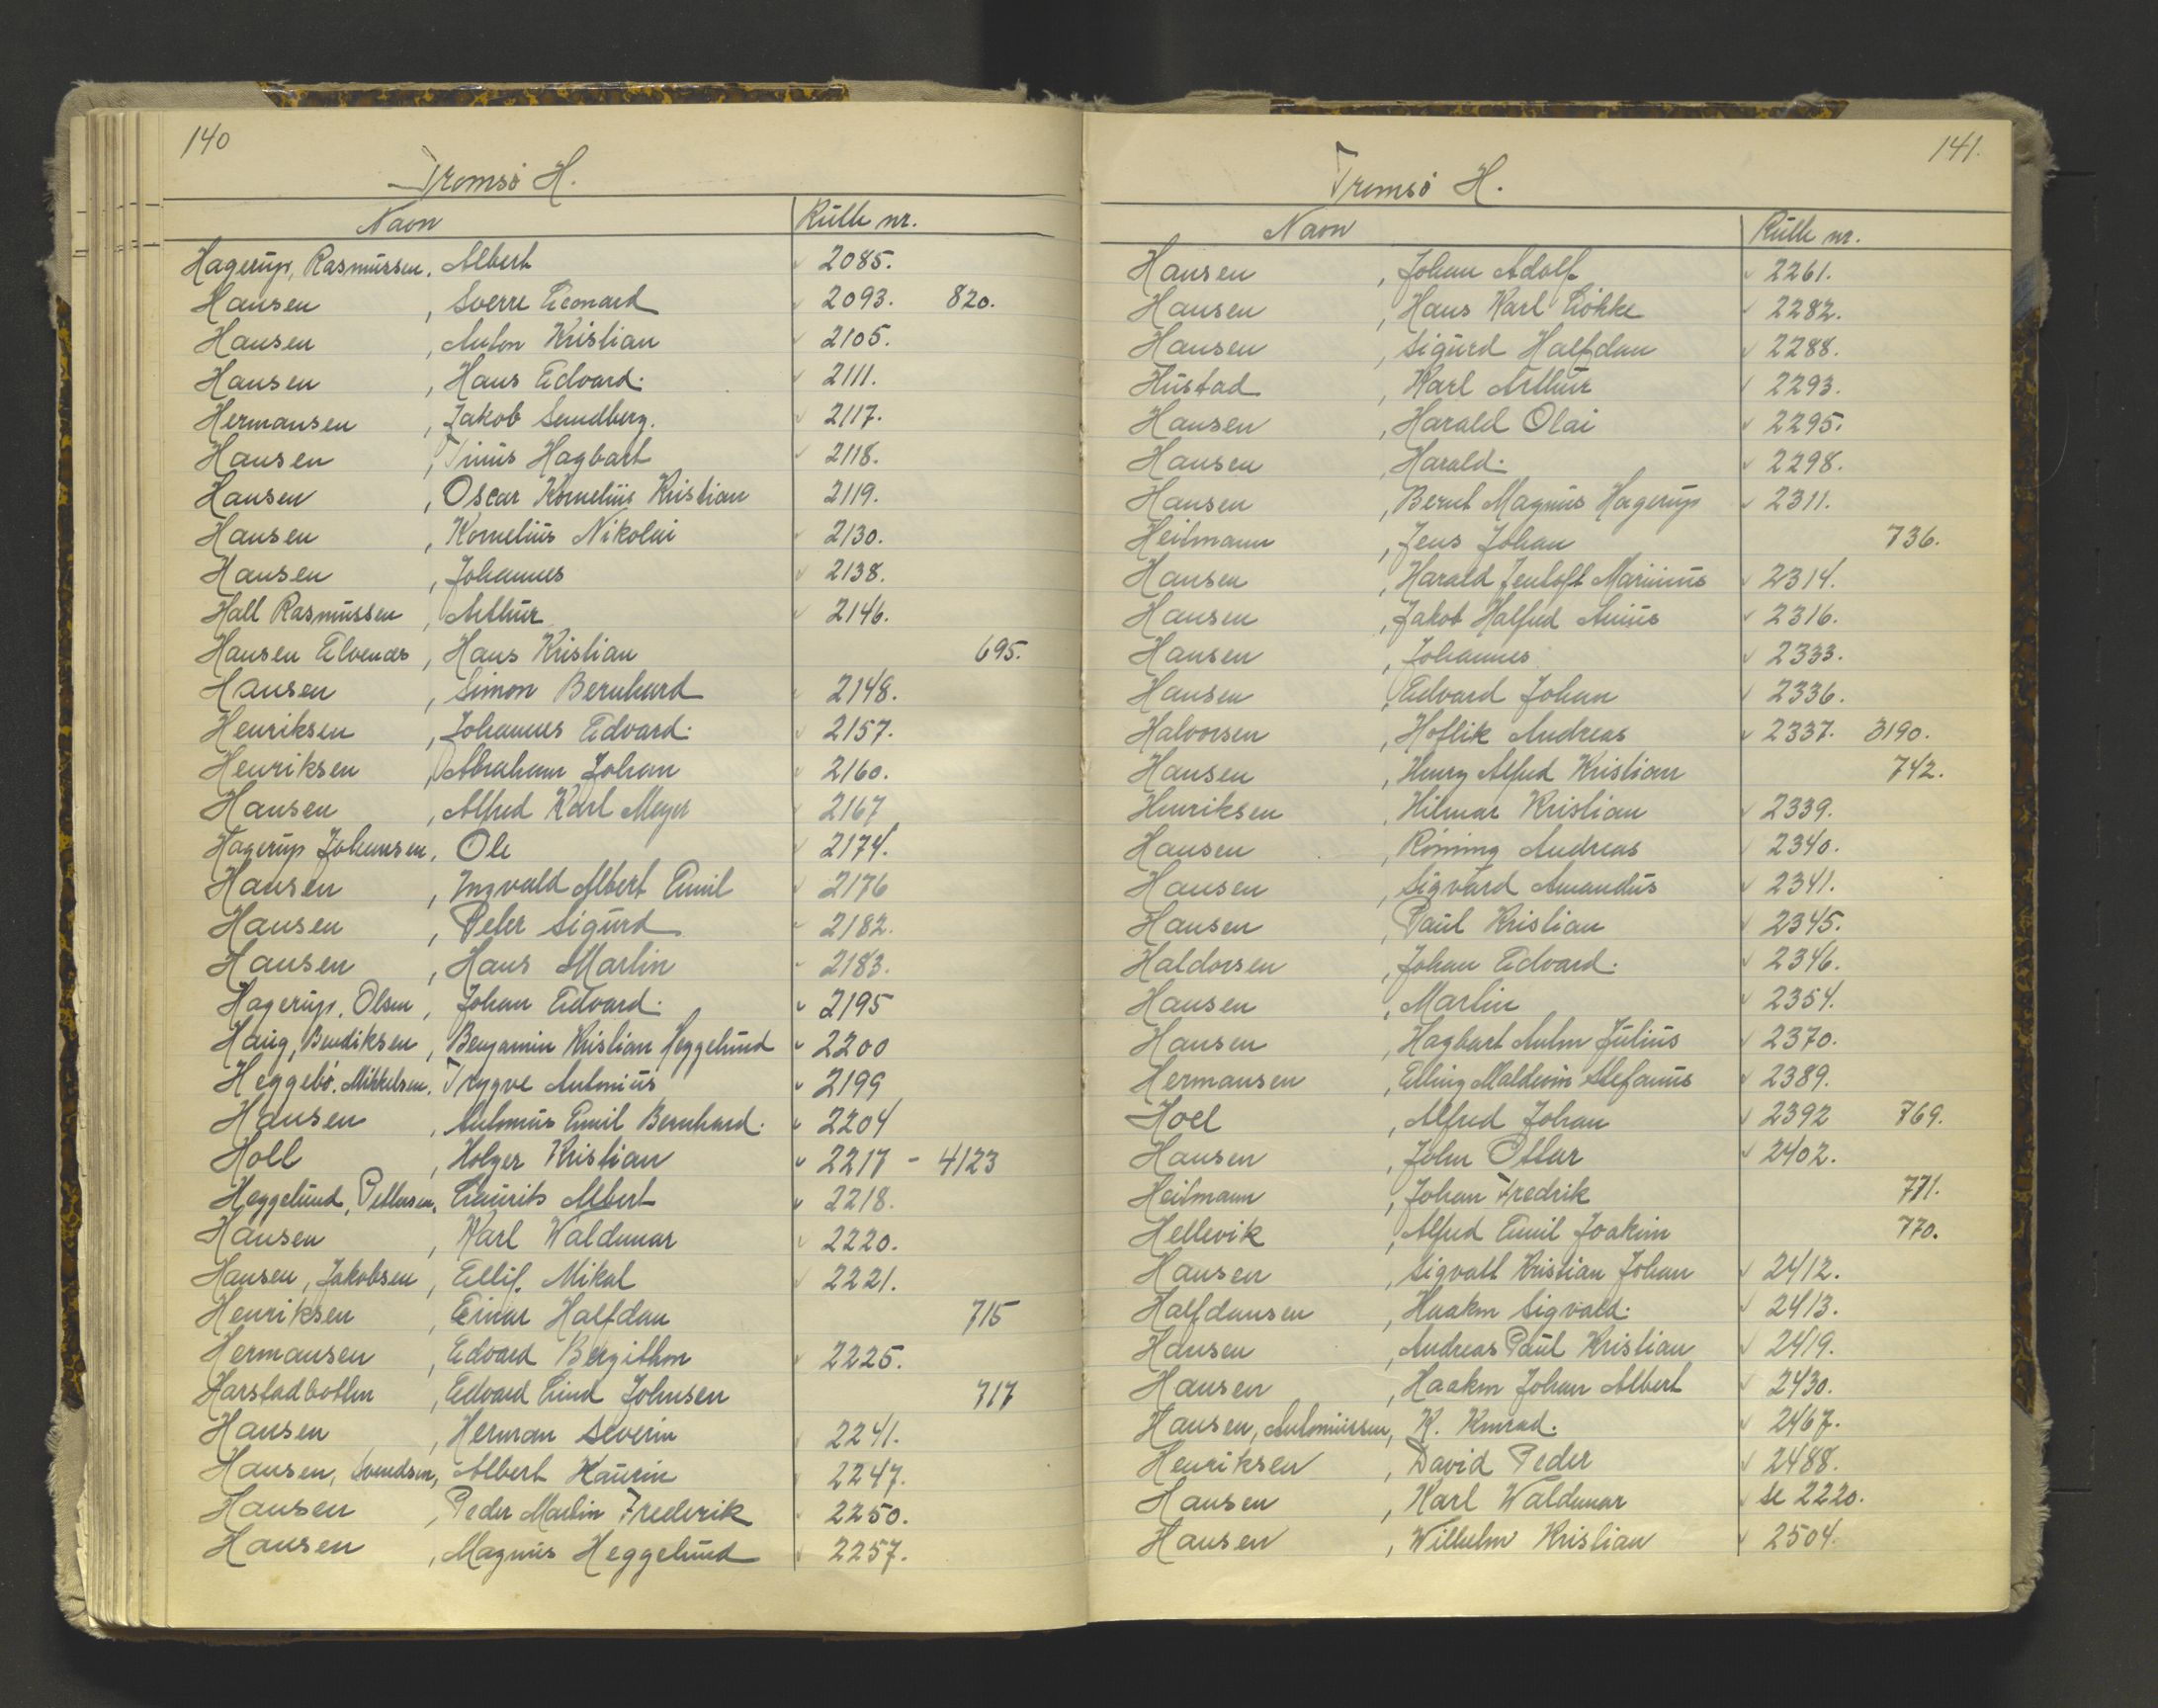 140
Tromsø H.
Navn Rulle nr.
Hagerup, Rasmussen, Albert 2085.
Hansen, Sverre Leonard 2093. 820.
Hansen, Anton Kristian 2105.
Hansen, Hans Edvard. 2111.
Hermansen, Jakob Sundberg. 2117.
Hansen, Trinus Hagbart 2118.
Hansen, Oscar Kornelius Kristian 2119.
Hansen, Kornelius Nikolai 2130.
Hansen, Johannes 2138.
Hall Rasmussen, Arthur 2146.
Hansen Elvenæs, Hans Kristian 695.
Hansen, Simon Bernhard 2148.
Henriksen, Johannes Edvard. 2157.
Henriksen, Abraham Johan 2160.
Hansen, Alfred Karl Meyer 2167
Hagerup Johansen, Ole 2174.
Hansen, Ingvald Albert Emil 2176
Hansen, Peter Sigurd 2182.
Hansen, Hans Martin 2183.
Hagerup, Olsen, Johan Edvard. 2195
Haug, Bendiksen, Benjamin Kristian Heggelund 2200
Heggebø, Mikkelsen, Trygve Antonius 2199
Hansen, Antonius Emil Bernhard. 2204
Holl, Holger Kristian 2217 - 4123
Heggelund, Pettersen, Laurits Albert 2218.
Hansen, Karl Waldemar 2220.
Hansen, Jakobsen, Ellif. Mikal 2221.
Henriksen, Einar Halfdan 715
Hermansen, Edvard Bergithon 2225.
Harstadbotten, Edvard Lind Johnsen 717
Hansen, Herman Severin 2241.
Hansen, Svendsen, Albert Kaurin 2247.
Hansen, Peder Martin Frederik 2250.
Hansen, Magnus Heggelund 2257.
141.
Tromsø H.
Navn Rulle nr.
Hansen, Johan Adolf 2261.
Hansen, Hans Karl Løkke 2282.
Hansen, Sigurd Halfdan 2288.
Hustad, Karl Arthur 2293.
Hansen, Harald Olai 2295.
Hansen, Harald. 2298.
Hansen, Bernt Magnus Hagerup 2311.
Heitmann, Jens Johan 736.
Hansen, Harald Jentoft Marinius 2314.
Hansen, Jakob Halfred 2316.
Hansen, Johannes 2333.
Hansen, Edvard Johan 2336.
Halvorsen, Hoflik Andreas 2337. 3190.
Hansen, Henry Alfred Kristian 742.
Henriksen, Hilmar Kristian 2339.
Hansen, Rønning Andreas 2340.
Hansen, Sigvard Amandus 2341.
Hansen, Paul Kristian 2345.
Haldorsen, Johan Edvard. 2346.
Hansen, Martin 2354.
Hansen, Hagbart Anton Julius 2370.
Hermansen, Elling Maldevin Stefanus 2389.
Hoel, Alfred Johan 2392 769.
Hansen, John Ottar 2402.
Heitmann, Johan Fredrik 771.
Hellevik, Alfred Emil Joakim 770.
Hansen, Sigvalt Kristian Johan 2412.
Halfdansen, Haakon Sigvald. 2413.
Hansen, Andreas Paul Kristian 2419.
Hansen, Haakon Johan Albert 2430.
Hansen, Antoniussen, K. Konrad. 2467.
Henriksen, David Peder 2488.
Hansen, Karl Waldemar se 2220.
Hansen, Wilhelm Kristian 2504.